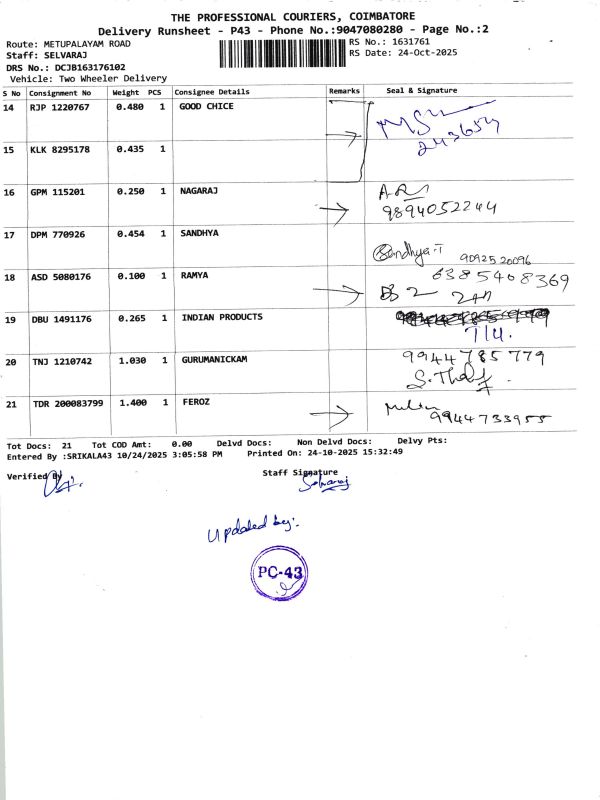 THE PROFESSIONAL COURIERS, COIMBATORE
Delivery Runsheet - P43 - Phone No.:9047080280 - Page No.:2
Route: METUPALAYAM ROAD
RS No.: 1631761
Staff: SELVARAJ
RS Date: 24-Oct-2025
DRS No.: DCJB163176102
Vehicle: Two Wheeler Delivery
S No Consignment No Weight PCS Consignee Details Remarks Seal & Signature
14 RJP 1220767 0.480 1 GOOD CHICE
15 KLK 8295178 0.435 1
16 GPM 115201 0.250 1 NAGARAJ
9894052244
17 DPM 770926 0.454 1 SANDHYA
Sandhya.T 9092520096
18 ASD 5080176 0.100 1 RAMYA 6385408369
19 DBU 1491176 0.265 1 INDIAN PRODUCTS
20 TNJ 1210742 1.030 1 GURUMANICKAM 9944785779
21 TDR 200083799 1.400 1 FEROZ
9944733955
Tot Docs: 21 Tot COD Amt: 0.00 Delvd Docs: Non Delvd Docs: Delvy Pts:
Entered By :SRIKALA43 10/24/2025 3:05:58 PM Printed On: 24-10-2025 15:32:49
Verified By
Staff Signature
Selvaraj
Updated by:
PC-43